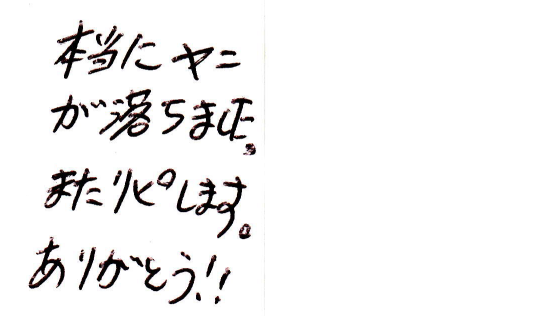 本当にヤニ
が落ちました。
またリピします。
ありがとう!!